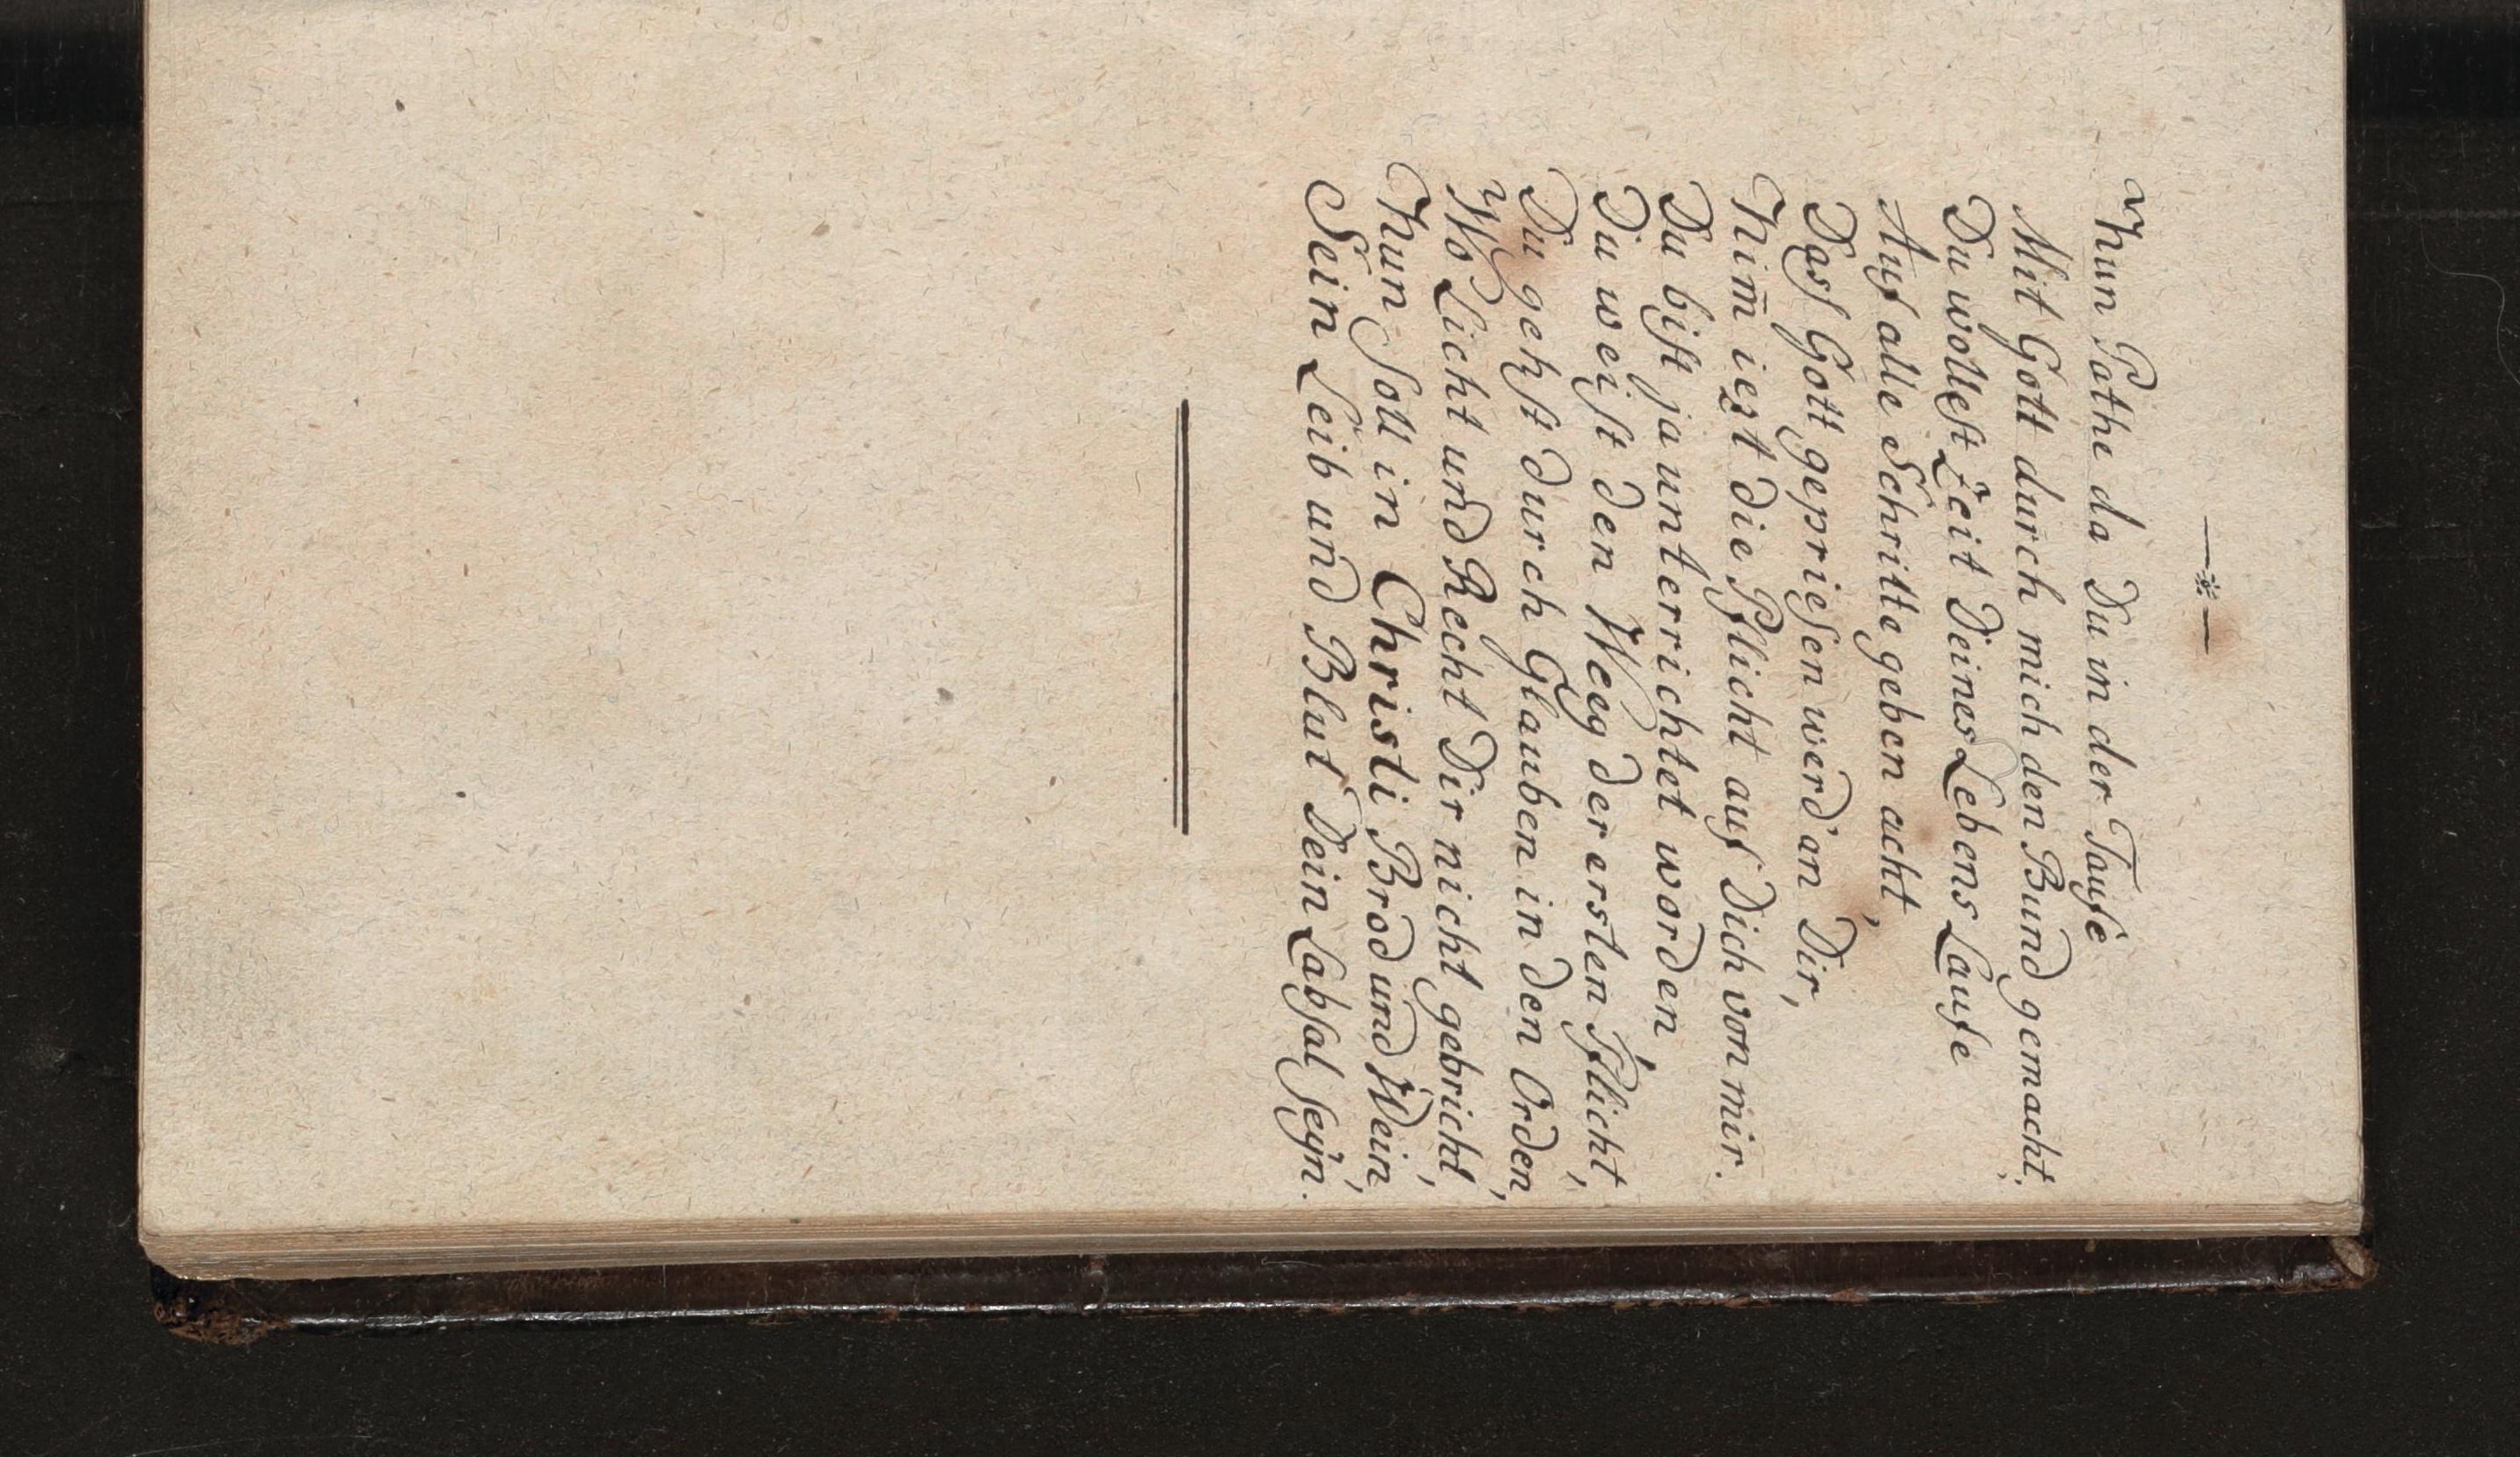 — * —
Nun Pathe da Du in der Taufe
Mit Gott durch mich den Bund gemacht,
Du wollest Zeit Deines Lebens Laufe
Auf alle Schritte geben acht,
Daß Gott gepriesen werd' an Dir,
Nim̄ iezt die Pflicht auf Dich von mir.
Du bist ja unterrichtet worden,
Du weist den Weg der ersten Pflicht,
Du gehst durch Glauben in den Orden,
Wo Licht und Recht Dir nicht gebricht,
Nun soll in Christi Brod und Wein,
Sein Leib und Blut Dein Labsal seyn.